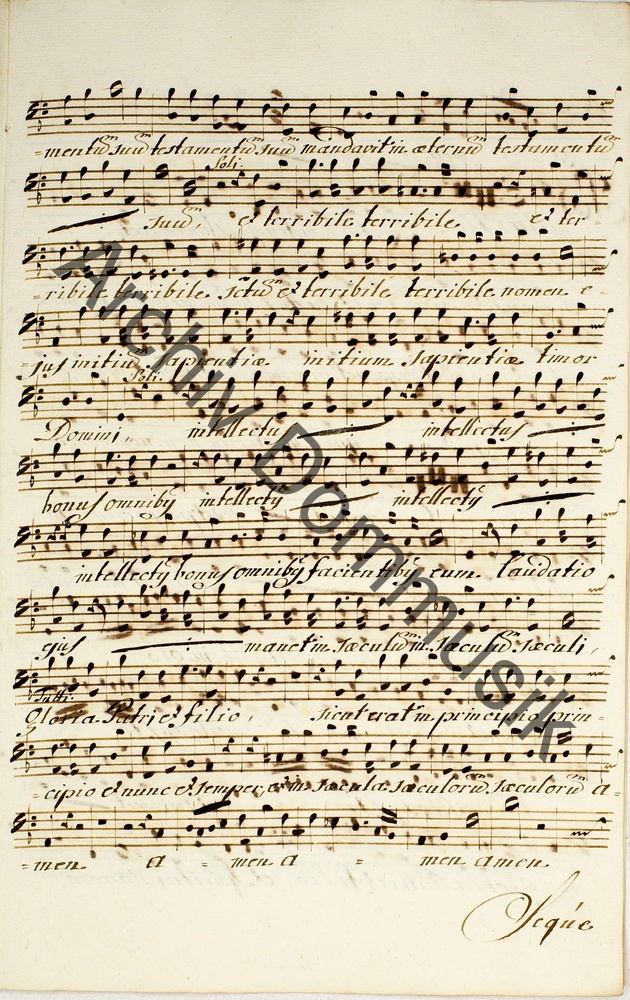 =mentũ suũ testamentũ suũ mandavit in æternũ testamentũ
Soli.
suũ, et terribile terribile et ter-
=ribile terribile. Sctũ et terribile terribile nomen e
=jus initiũ sapientiæ initium sapientiæ timor
Soli.
Domini, intellectu intellectus
bonus omnibq intellectq intellectq
intellectq bonus omnibq facientibq eum. laudatio
ejus manet in sæculũ in sæculũ sæculi,
Tutti.
Gloria Patri et filio, sicut erat in principio prin=
=cipio et nunc et semper, et in sæcula sæculorũ, sæculorũ a-
=men a - men a = men amen.
Seque
Archiv Dommusik